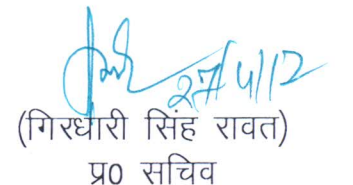 27/4/12
(गिरधारी सिंह रावत)
प्र0 सचिव